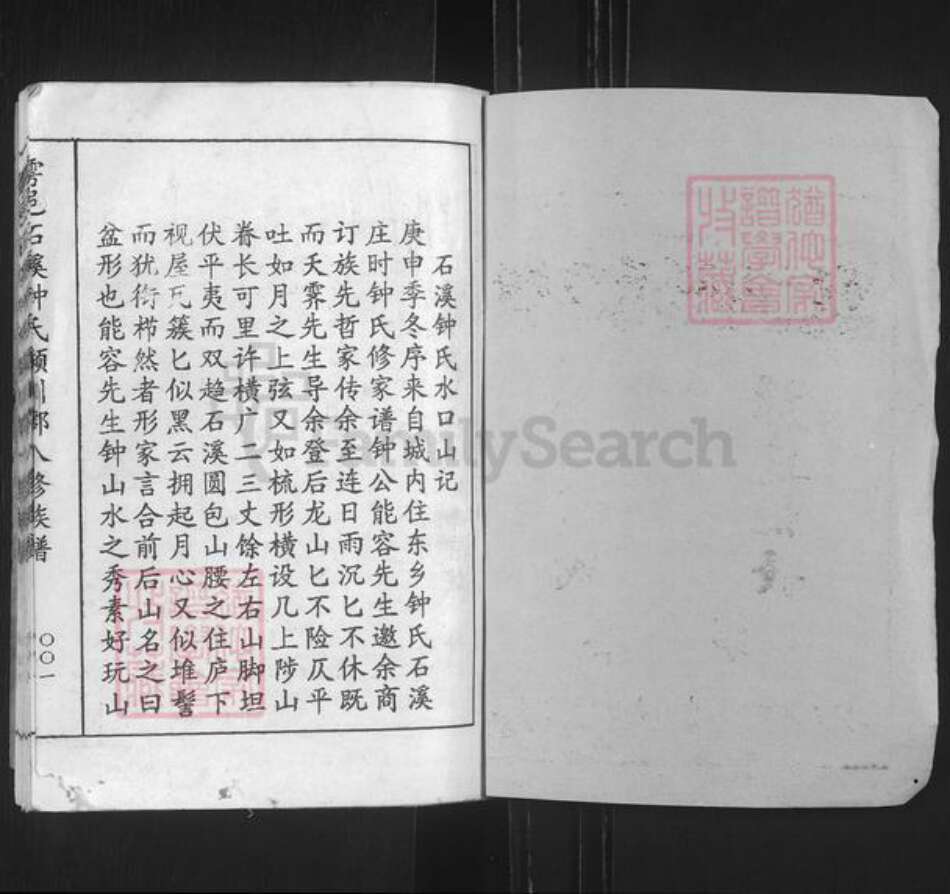 石溪钟氏水口山记
庚申季冬序来自城内住东乡钟氏石溪
庄时钟氏修家谱钟公能容先生邀余商
订族先哲家传余至连日雨沉匕不休既
而天霁先生导余登后龙山匕不险仄平
吐如月之上弦又如梳形横设几上陟山
脊长可里许横广二三丈馀左右山脚坦
伏平夷而双趋石溪圆包山腰之住庐下
视屋瓦簇匕似黑云拥起月心又似堆髻
而犹衔栉然者形家言合前后山名之曰
盆形也能容先生钟山水之秀素好玩山
雩邑石溪钟氏颍川郡八修族谱
〇〇一
FamilySearch
谱学会
收藏